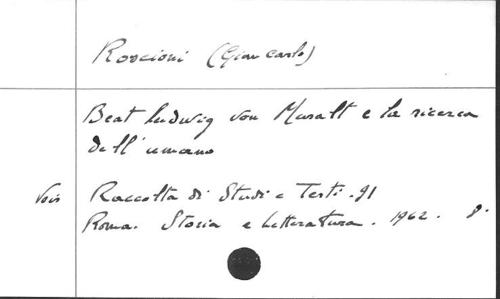 Roscioni (Gian Carlo)
Beat Ludwig von Muralt e la ricerca
dell'umano
Voir Raccolta di Studi e Testi. 91
Roma. Storia e Letteratura. 1962. 8.